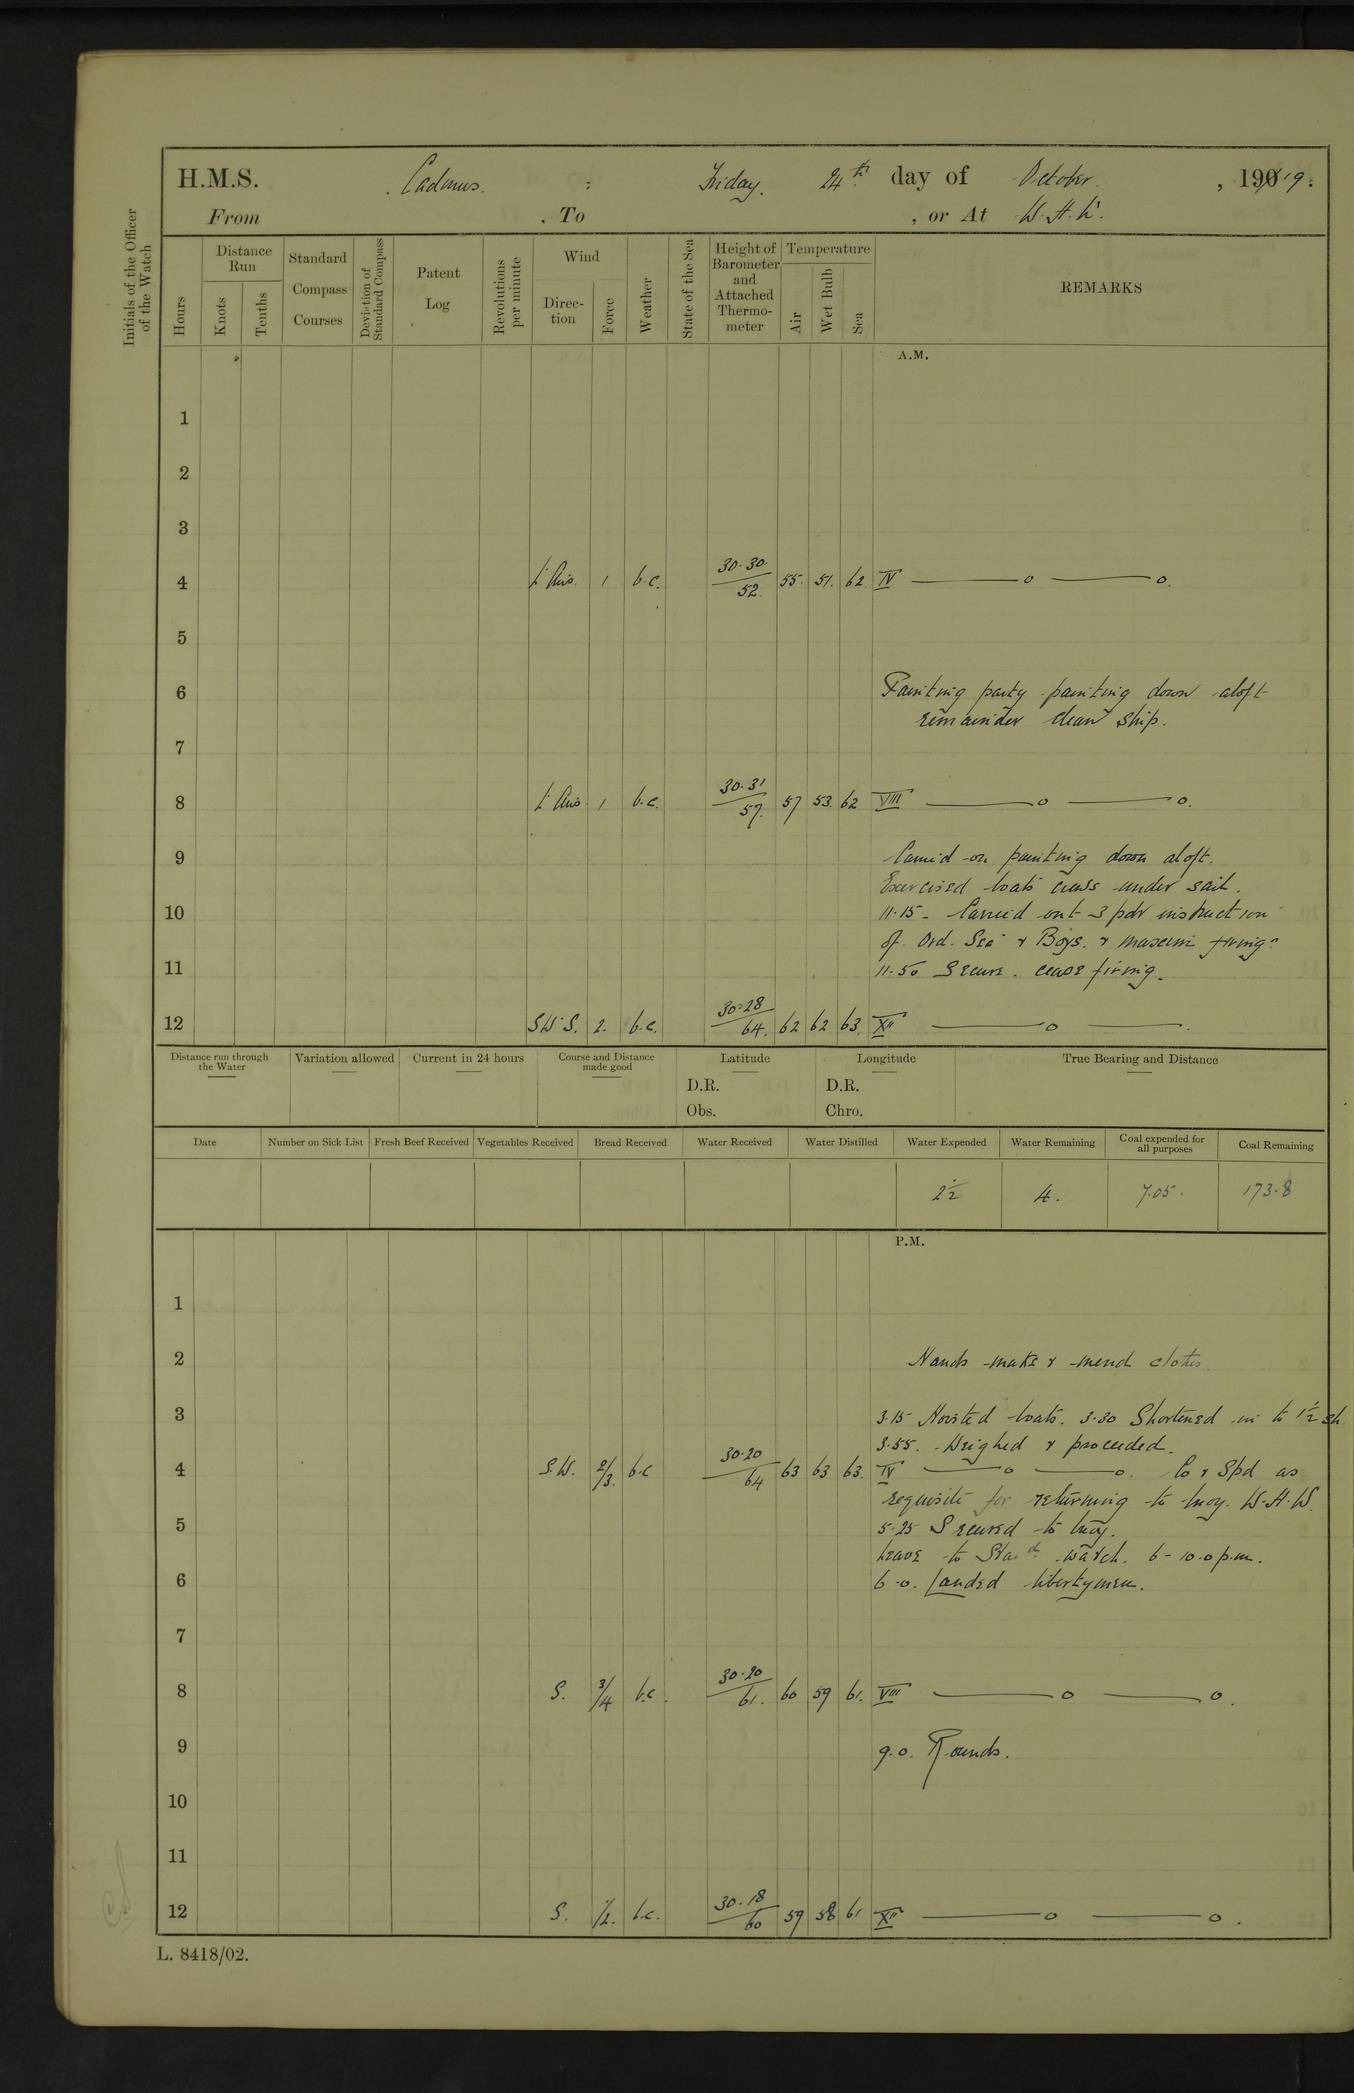 H.M.S. Cadmus. Friday. 24th day of October. , 1919.
From , To , or At W.H.W.
Initials of the Officer of the Watch
Hours
Distance Run
Knots
Tenths
Standard Compass Courses
Deviation of Standard Compass
Patent Log
Revolutions per minute
Wind
Direction
Force
Weather
State of the Sea
Height of Barometer and Attached Thermometer
Temperature
Air
Wet Bulb
Sea
REMARKS
A.M.
1
2
3
4 Lt Airs. 1 b.c. 30.30 52. 55. 51. 62. IV
5
6 Painting party painting down aloft
remainder clean ship.
7
8 Lt Airs. 1 b.c. 30.31 57. 57 53. 62 VIII
9 Carried on painting down aloft.
Exercised boats crews under sail.
10 11.15 - Carried out 3 pdr instruction
of Ord. Sea & Boys. & maxim firing.
11 11.50 Secure. cease firing.
12 2. b.c. 30.28 64. 62 62 63. XII
Distance run through the Water
Variation allowed
Current in 24 hours
Course and Distance made good
Latitude
D.R.
Obs.
Longitude
D.R.
Chro.
True Bearing and Distance
Date
Number on Sick List
Fresh Beef Received
Vegetables Received
Bread Received
Water Received
Water Distilled
Water Expended
Water Remaining
Coal expended for all purposes
Coal Remaining
2½ 4. 7.05. 173.8
P.M.
1
2 Hands make & mend clothes.
3 3.15 Hoisted boats. 3.30 Shortened in to 1½ sh.
3.55. Weighed & proceeded.
4 S.W. 2/3. b.c 30.20 64 63 63 63. IV Co & Spd as
requisite for returning to buoy. W.H.W.
5 5.25 Secured to buoy.
Leave to Starbd watch. 6 - 10.0 p.m.
6 6.0. Landed libertymen.
7
8 S. 3/4 b.c. 30.20 61. 60 59 61. VIII
9 9.0. Rounds.
10
11
12 S. 1/2. b.c. 30.18 60 59 58 61 XII
L. 8418/02.